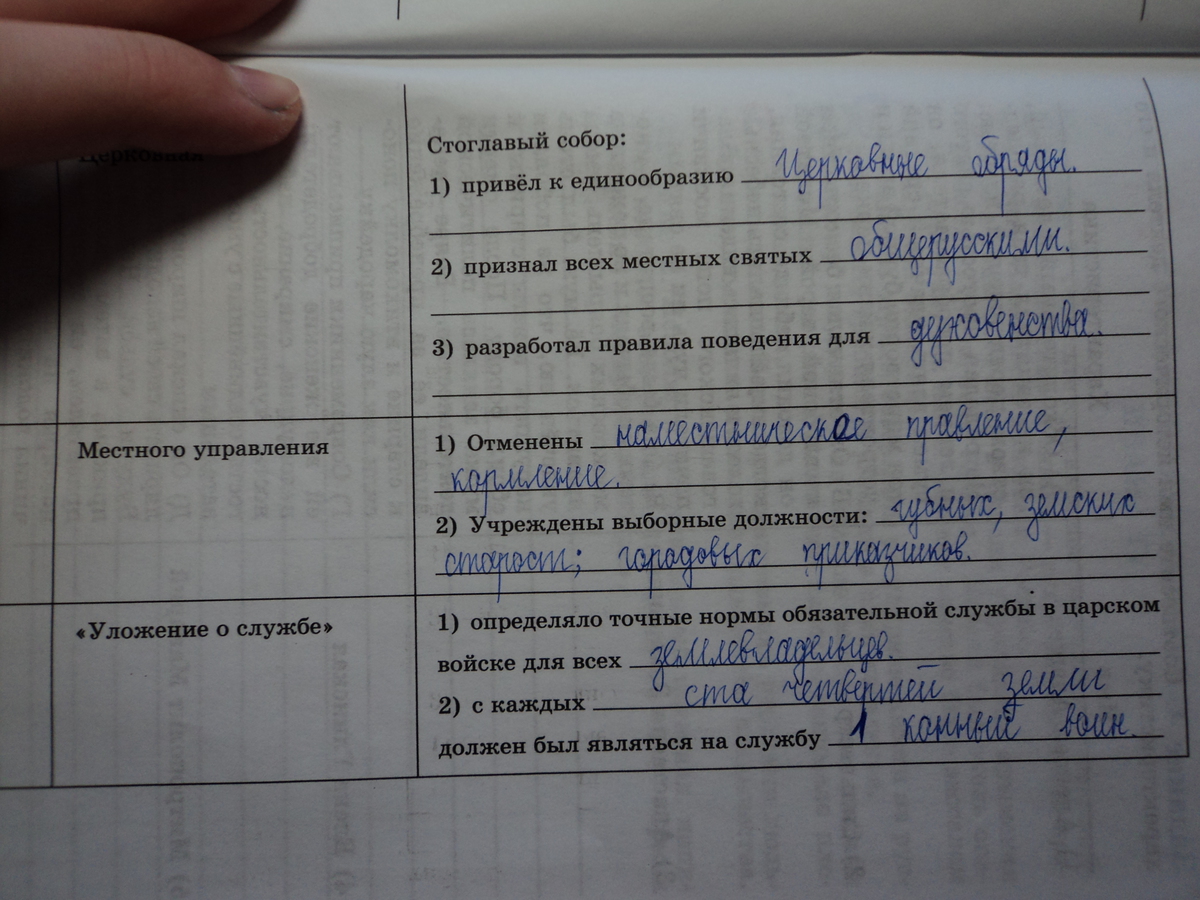 Церковная
Стоглавый собор:
1) привёл к единообразию Церковные обряды.
2) признал всех местных святых общерусскими.
3) разработал правила поведения для духовенства.
Местного управления
1) Отменены наместническое правление,
кормление.
2) Учреждены выборные должности: губных, земских
старост; городовых приказчиков.
«Уложение о службе»
1) определяло точные нормы обязательной службы в царском
войске для всех землевладельцев.
2) с каждых ста четвертей земли
должен был являться на службу 1 конный воин.